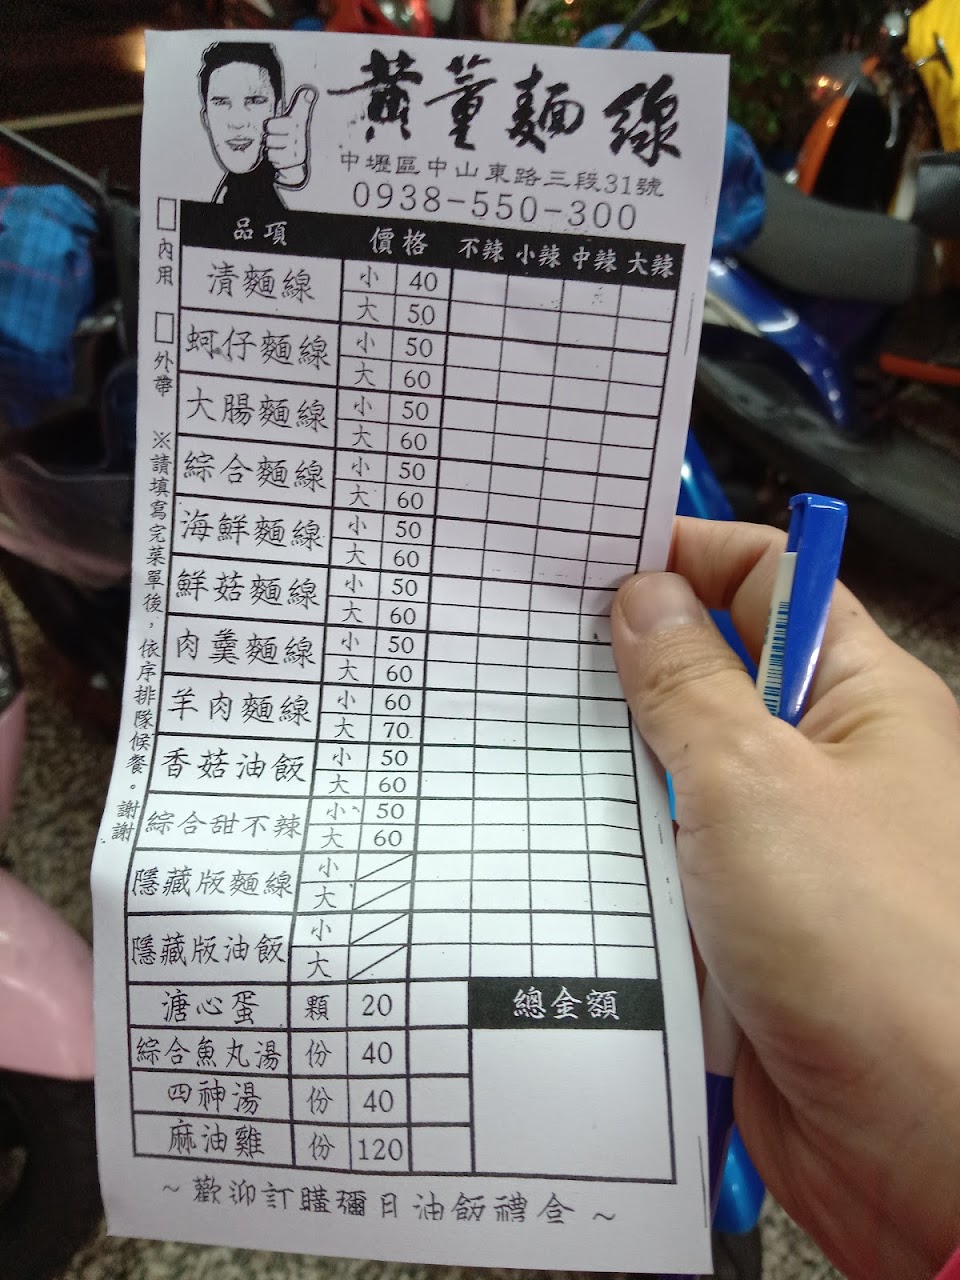 黃董麵線
中壢區中山東路三段31號
0938-550-300
內用
外帶
※請填寫完菜單後，依序排隊候餐。謝謝
品項 價格 不辣 小辣 中辣 大辣
清麵線 小 40
大 50
蚵仔麵線 小 50
大 60
大腸麵線 小 50
大 60
綜合麵線 小 50
大 60
海鮮麵線 小 50
大 60
鮮菇麵線 小 50
大 60
肉羹麵線 小 50
大 60
羊肉麵線 小 60
大 70
香菇油飯 小 50
大 60
綜合甜不辣 小 50
大 60
隱藏版麵線 小
大
隱藏版油飯 小
大
溏心蛋 顆 20 總金額
綜合魚丸湯 份 40
四神湯 份 40
麻油雞 份 120
~歡迎訂購彌月油飯禮盒~